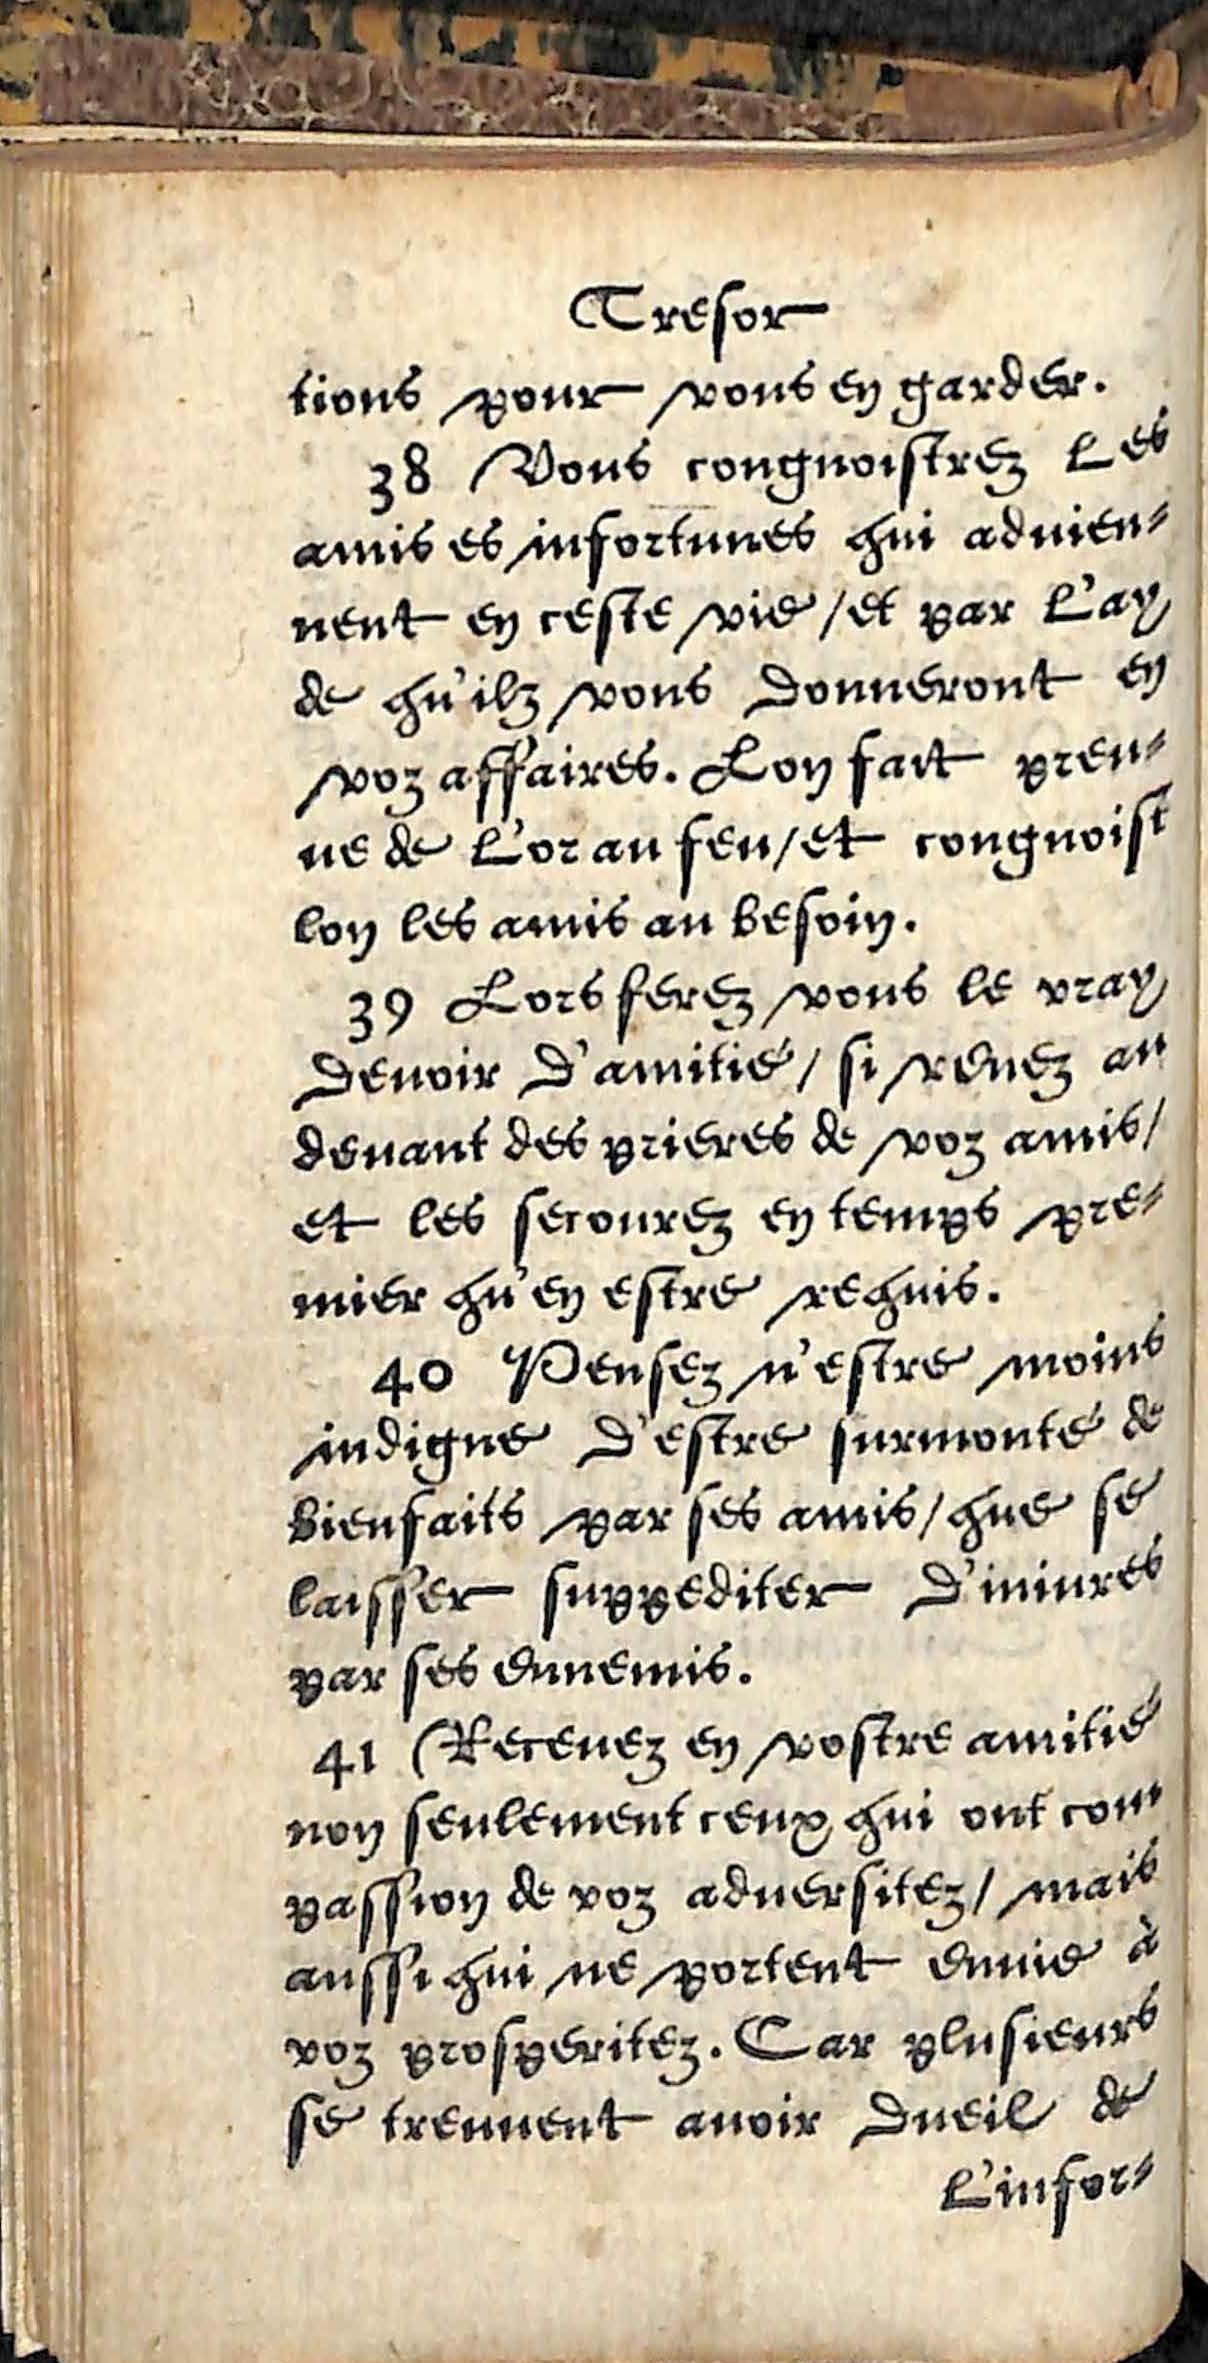 Tresor
tions pour vous en garder.
38 Vous congnoistrez les
amis es infortunes qui advien-
nent en ceste vie/et par l'ay
de qu'ilz vous donneront en
voz affaires. Lon fait preu-
ue de l'or au feu/et congnoist
lon les amis au besoin.
39 Lors ferez vous le vray
deuoir d'amitié/ si venez au
deuant des prieres de voz amis/
et les secourez en temps pre-
mier qu'en estre requis.
40 Pensez n'estre moins
indigne d'estre surmonté de
bienfaits par ses amis/que se
laisser suppediter d'iniures
par ses ennemis.
41 Receuez en vostre amitié
non seulement ceux qui ont com
passion de voz aduersitez/ mais
aussi qui ne portent enuie à
voz prosperitez. Car plusieurs
se treuuent auoir dueil de
l'infor-